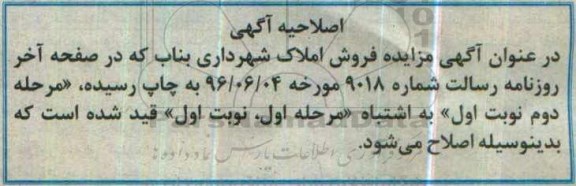 اصلاحیه آگهی
در عنوان آگهی مزایده فروش املاک شهرداری بناب که در صفحه آخر
روزنامه رسالت شماره ۹۰۱۸ مورخه ۹۶/۰۶/۰۴ به چاپ رسیده، «مرحله
دوم نوبت اول» به اشتباه «مرحله اول، نوبت اول» قید شده است که
بدینوسیله اصلاح می‌شود.